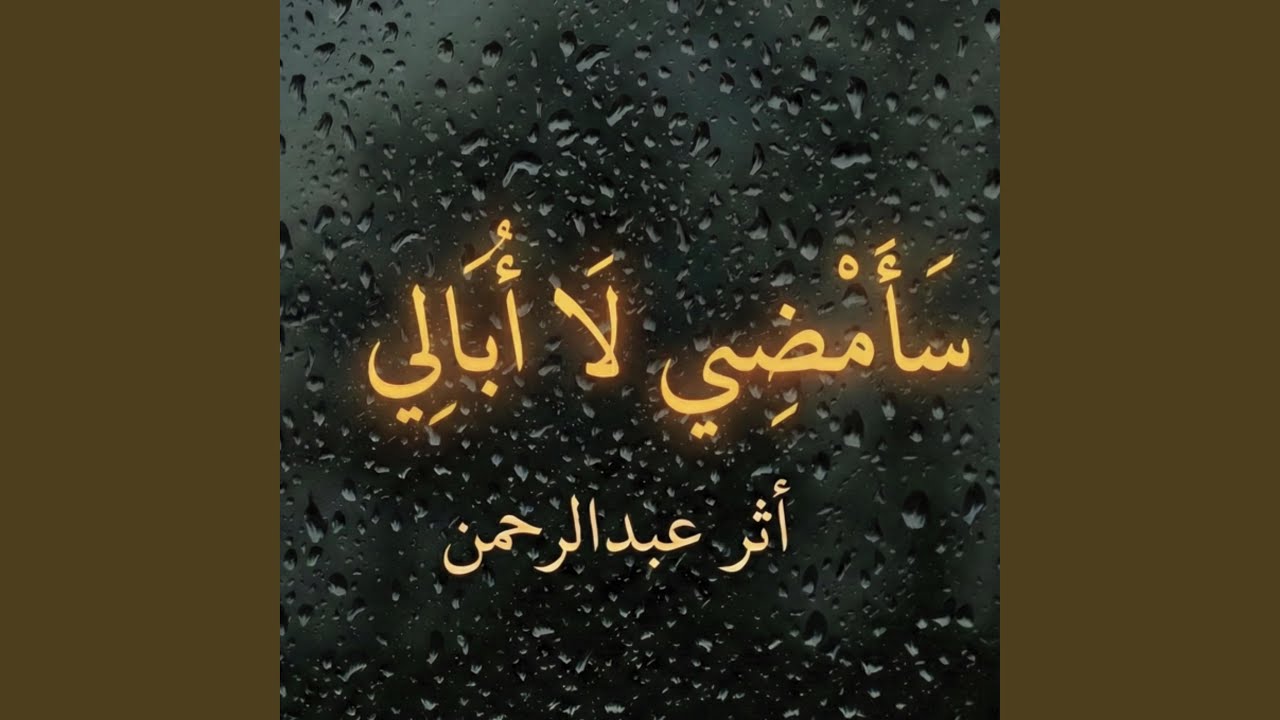 سَأَمْضِي لَا أُبَالِي
أثر عبدالرحمن